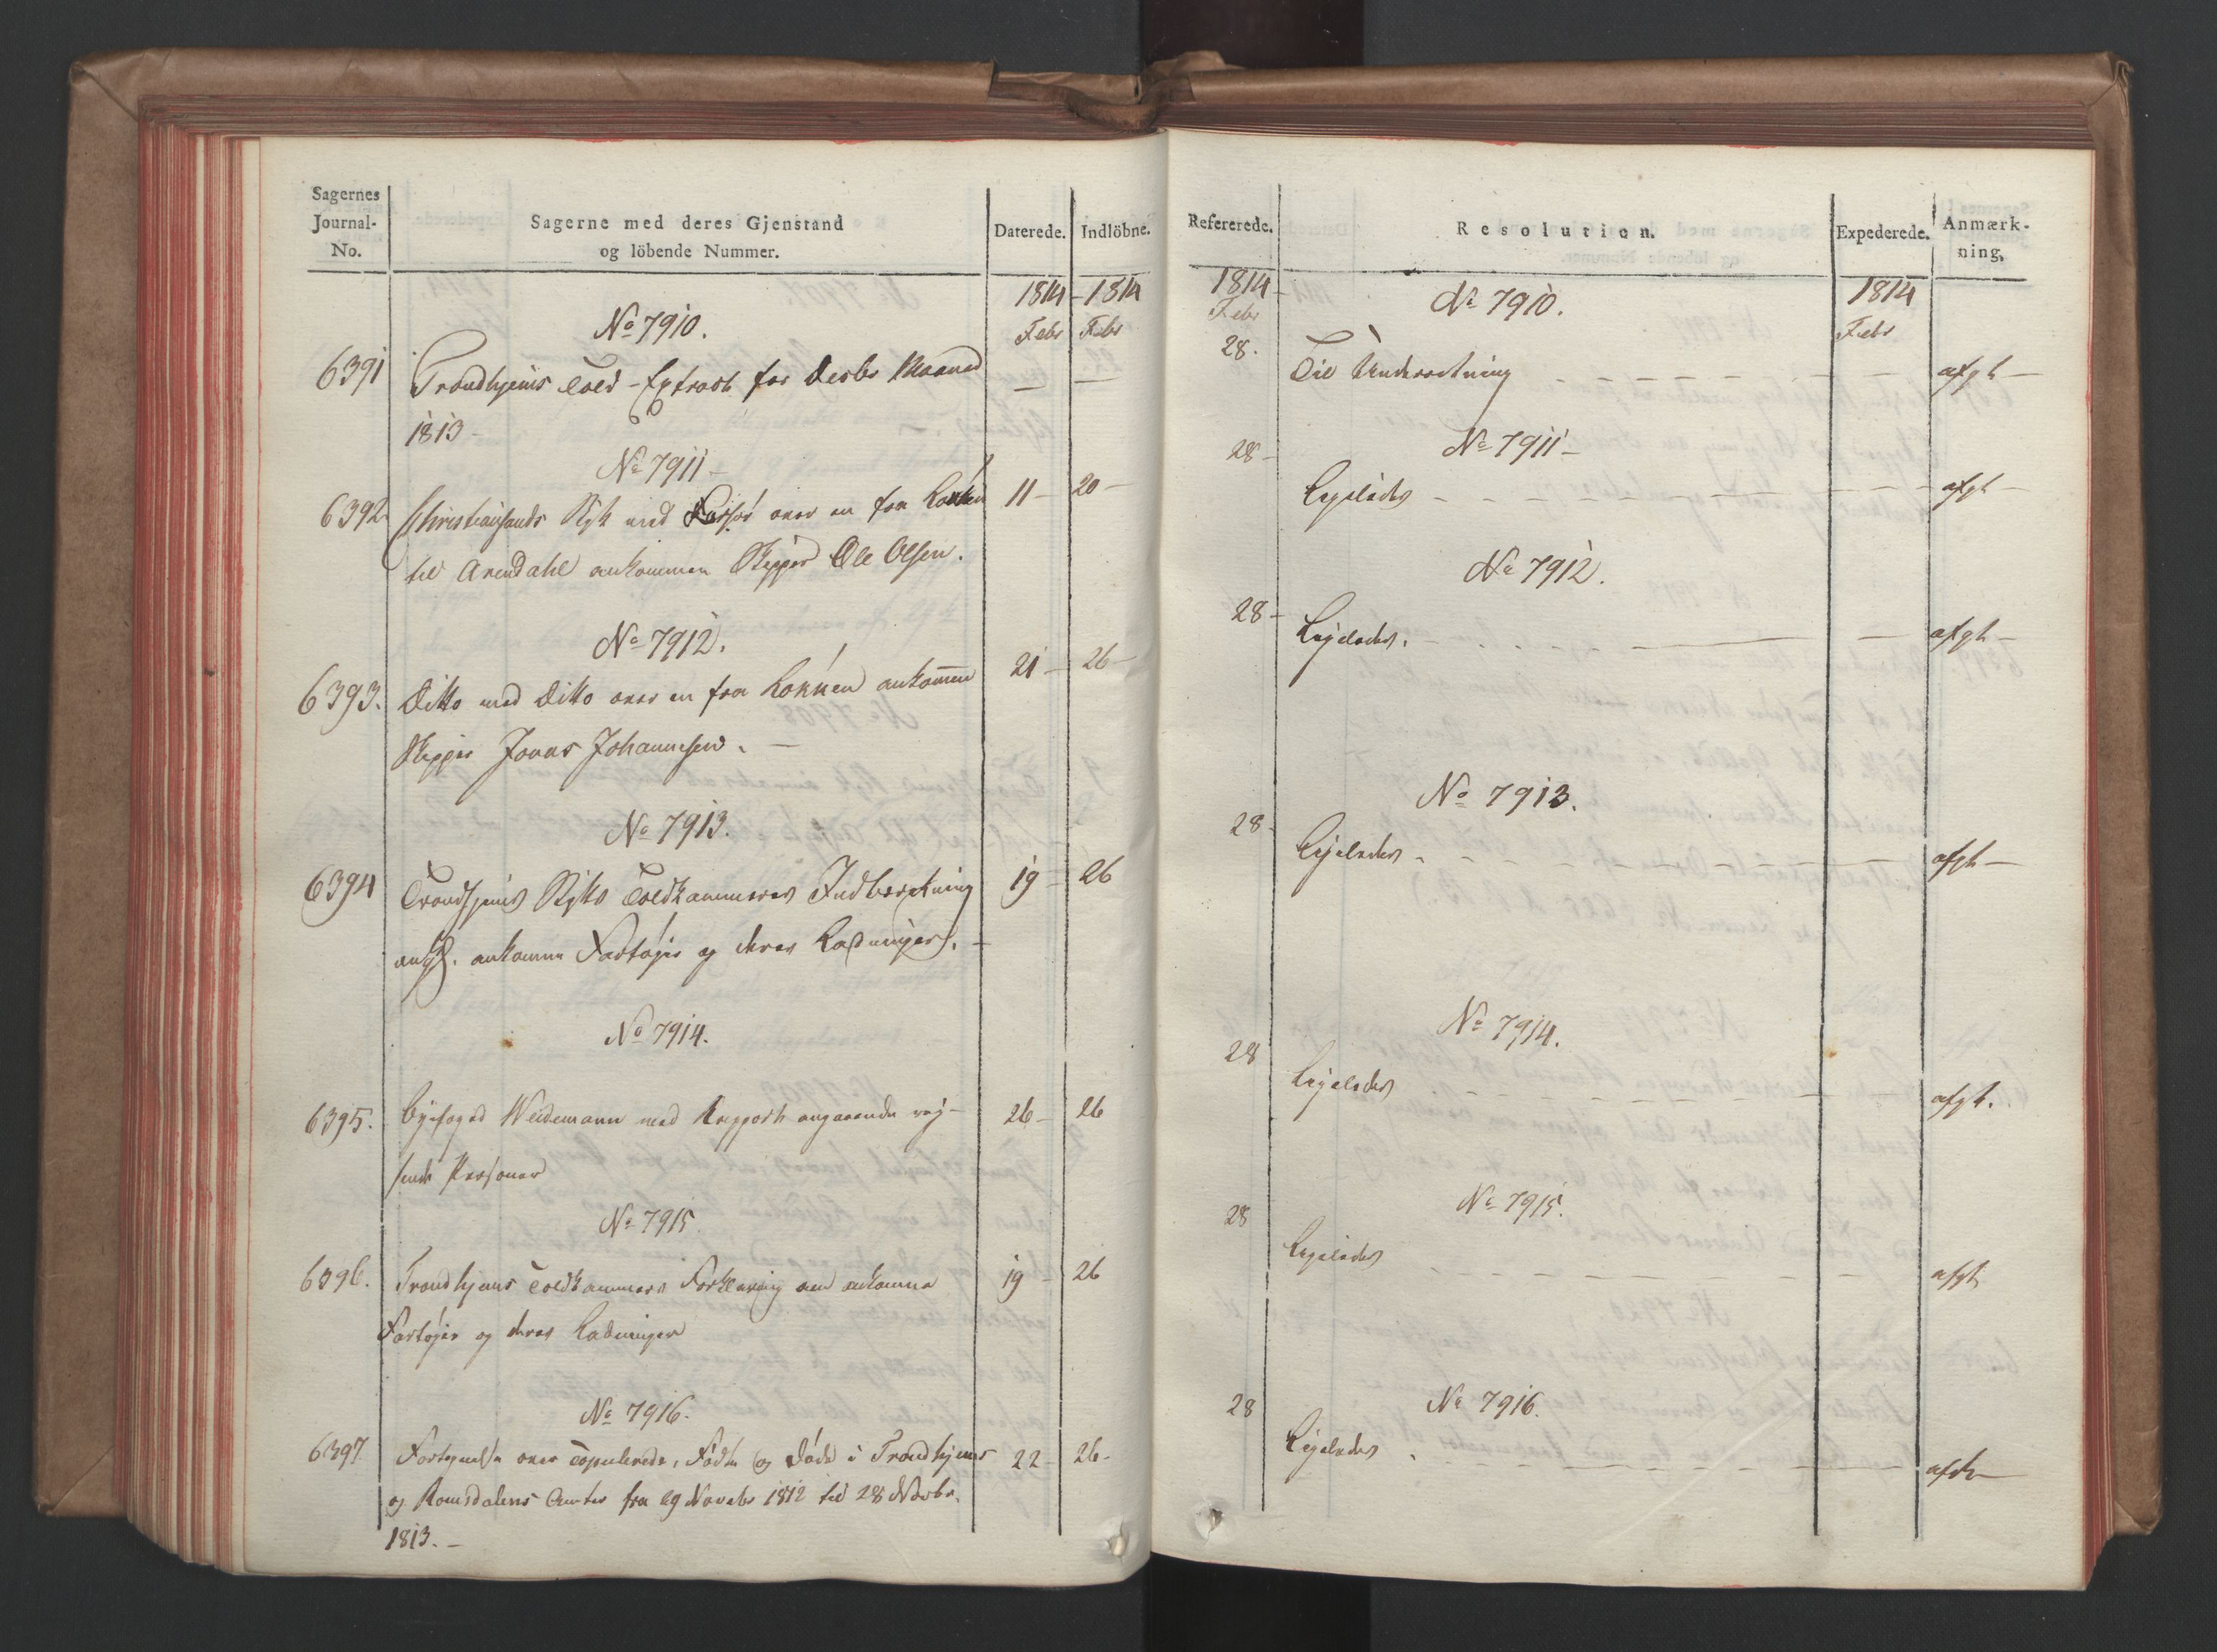 Sagernes
Journal-
No.
Sagerne med deres Gjenstand
og löbende Nummer.
Daterede.
Indlöbne.
1814 - 1814
Febr Febr
No 7910.
6391 Trondhjems Told-Extract for Decbr Maaned — —
1813 -
No 7911 -
6392 Christiansands Stift med over en fra Løkken 11 - 20 -
til Arendahl ankommen Skipper Ole Olsen.
No 7912.
6393. Ditto med Ditto over en fra Løkken ankommen 21 - 26 -
Skipper Jonas Johannesen. -
No 7913.
6394 Trondhjems Stifts Toldkammeres Indberetning 19 - 26
ang. ankomne Fartøjer og deres Ladninger. -
No 7914.
6395. Byefoged Weidemann med Rapport angaaende rej- 26 - 26
sende Personer
No 7915
6396. Trondhjems Toldkammers Forklaring om ankomne 19 - 26
Fartøjer og deres Ladninger
No 7916.
6397 Fortegnelse over Copulerede, Fødte og Døde i Trondhjems 22 - 26 -
og Romsdalens Amter fra 29 Novebr 1812 til 28 Novbr.
1813. -
Refererede.
Resolution.
Expederede.
Anmærk-
ning.
1814 1814
Febr Febr
No 7910.
28. Til Underretning afgt -
No 7911 -
28 - Ligeledes - afgt
No 7912.
28 - Ligeledes. afgt -
No 7913.
28 - Ligeledes - afgt -
No 7914.
28 Ligeledes afgt.
No 7915.
28 Ligeledes afgt
No 7916.
28 Ligeledes afgt -